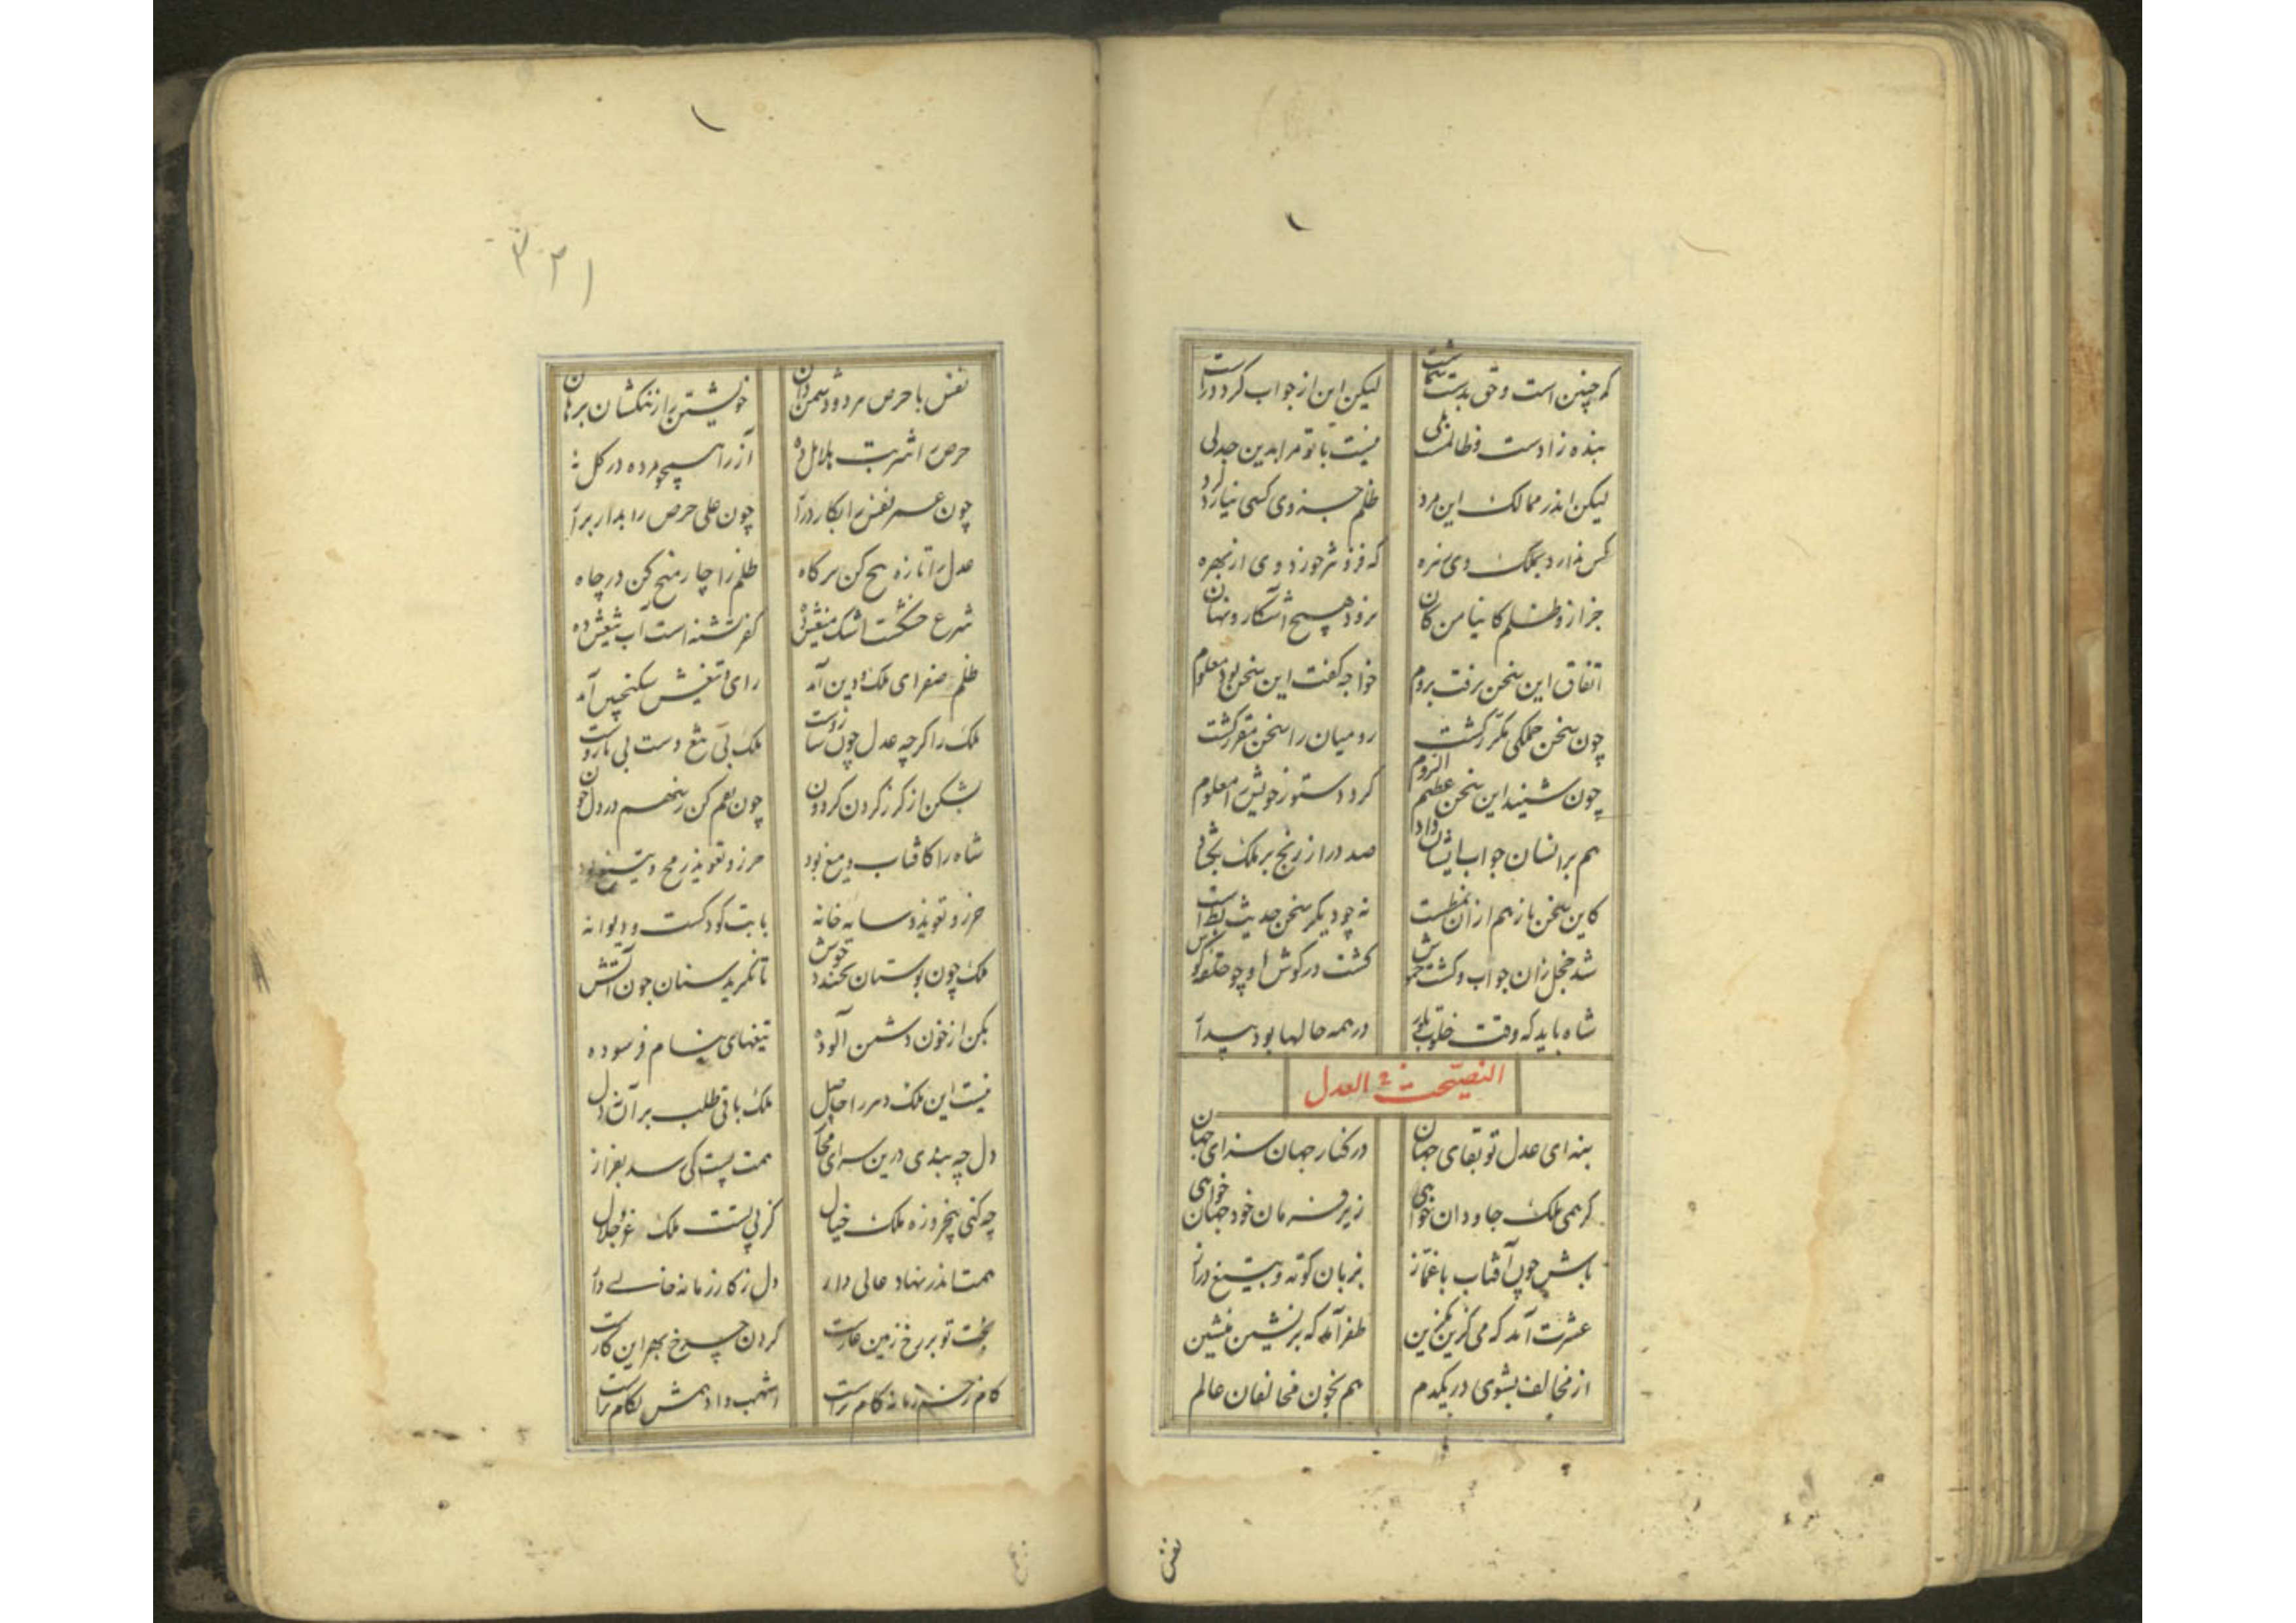 که چنین است و حق بدست شماست لیکن این از جواب گردد راست
بنده زادست و ظالمست بلی نیست با تو مرا بدین جدلی
لیکن اندر ممالک این مرد ظلم جز وی کسی نیارد کرد
کس ندارد بملک وی زهره که فزونتر خورد وی از بهره
جز ازو ظلم کاینا من کان نرود هیچ آشکار و نهان
اتفاق این سخن برفت بروم خواجه گفت این سخن بود معلوم
چون سخن جملگی مکرر گشت رومیان را سخن مقرر گشت
چون شنید این سخن عظیم الروم کرد دستور خویش را معلوم
هم بر انسان جواب ایشان داد صد در از رنج بر ملک بگشاد
کاین سخن باز هم از آن نمط است نه چو دیگر سخن حدیث بط است
شد خجل زان جواب و گشت خموش گشت در گوش او چو حلقه گوش
شاه باید که وقت خلوت و بار در همه حالها بود بیدار
النصیحت فی العدل
بنه ای عدل تو بقای جهان در کنار جهان سزای جهان
گر همی ملک جاودان خواهی زیر فرمان خود جهان خواهی
باش چون آفتاب با غماز بزبان کوته و بتیغ دراز
عشرت آمد که می گزین مگزین ظفر آمد که بر نشین منشین
از مخالف بشوی در یکدم هم بخون مخالفان عالم
نفس
۳۲۱
نفس با حرص مرد و دشمن دان خویشتن را ز ننگشان برهان
حرص را شربت هلاهل ده آز را همچو مرده در گل نه
چون عمر نفس را بکار درآر چون علی حرص را بدار برآر
عدل را تازه بیخ کن بر گاه ظلم را چار میخ کن در چاه
شرع خشکست اشک میغش ده کفر تشنه است آب تیغش ده
ظلم صفرای ملک و دین آمد رای و تیغش سکنجبین آمد
ملک را گرچه عدل چون نیروست ملک بی تیغ دست بی بازوست
بشکن از گرز گردن گردون
شاه را کافتاب و میغ بود حرز و تعویذ رمح و تیغ بود
حرز و تعویذ و سایه خانه بابت کودکست و دیوانه
ملک چون بوستان نخندد خوش تا نگرید سنان چون آتش
بکن از خون دشمن آلوده تیغهای نیام فرسوده
نیست این ملک دهر را حاصل ملک باقی طلب بر آن نه دل
دل چه بندی درین سرای مجاز همت پست کی رسد بفراز
چه کنی پنجروزه ملک خیال
همت اندر نهاد عالی دار دل ز کار زمانه خالی دار
تخت تو بر رخ زمین عارست گردن چرخ بهر این کارست